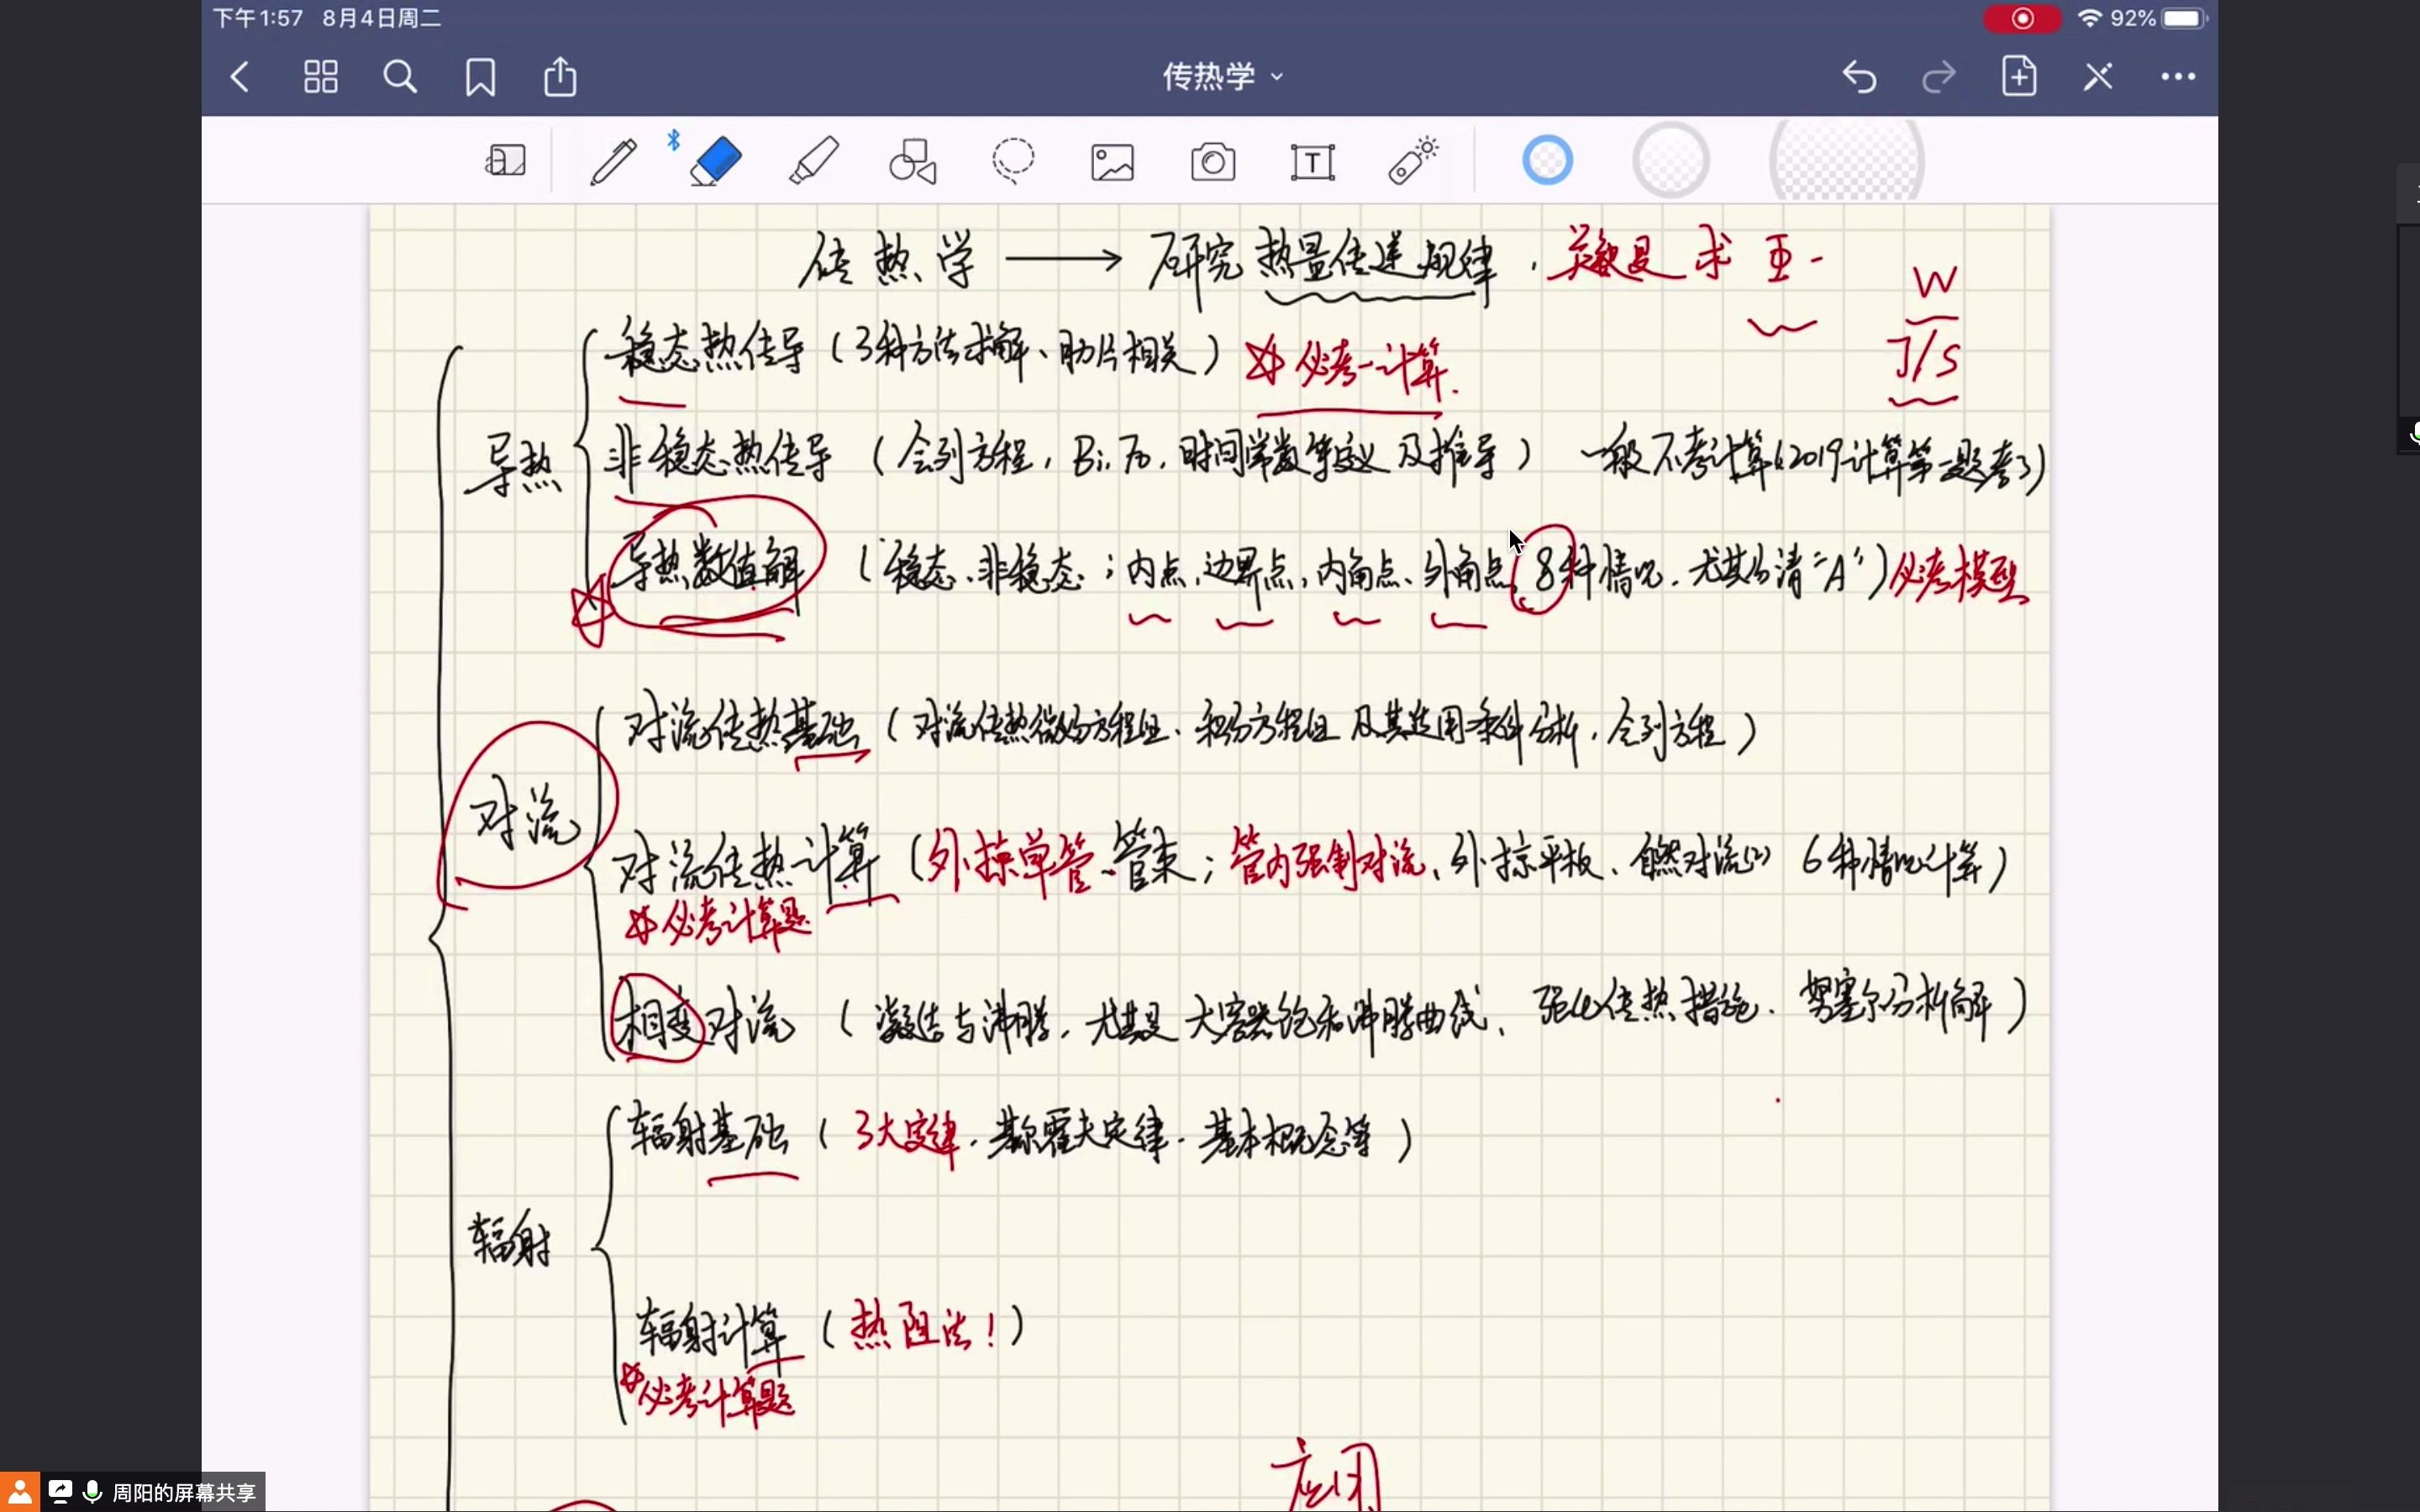 下午1:57 8月4日周二
92%
传热学
T
传热学 → 研究热量传递规律，关键是求 Φ
W
J/S
稳态热传导（3种方法求解、肋片相关）必考计算.
导热
非稳态热传导（会列方程，Bi, Fo, 时间常数等定义及推导） 一般不考计算(2019计算第一题考了)
导热数值解（稳态、非稳态；内点、边界点、内角点、外角点, 8种情况，尤其分清"A"）必考模型
对流传热基础（对流传热微分方程组、积分方程组及其适用条件分析，会列方程）
对流
对流传热计算（外掠单管、管束；管内强制对流、外掠平板、自然对流(2) 6种情况计算）
必考计算题
相变对流（凝结与沸腾，尤其是大容器饱和沸腾曲线、强化传热措施、努塞尔分析解）
辐射基础（3大定律、基尔霍夫定律、基本概念等）
辐射
辐射计算（热阻法！）
必考计算题
应用
周阳的屏幕共享